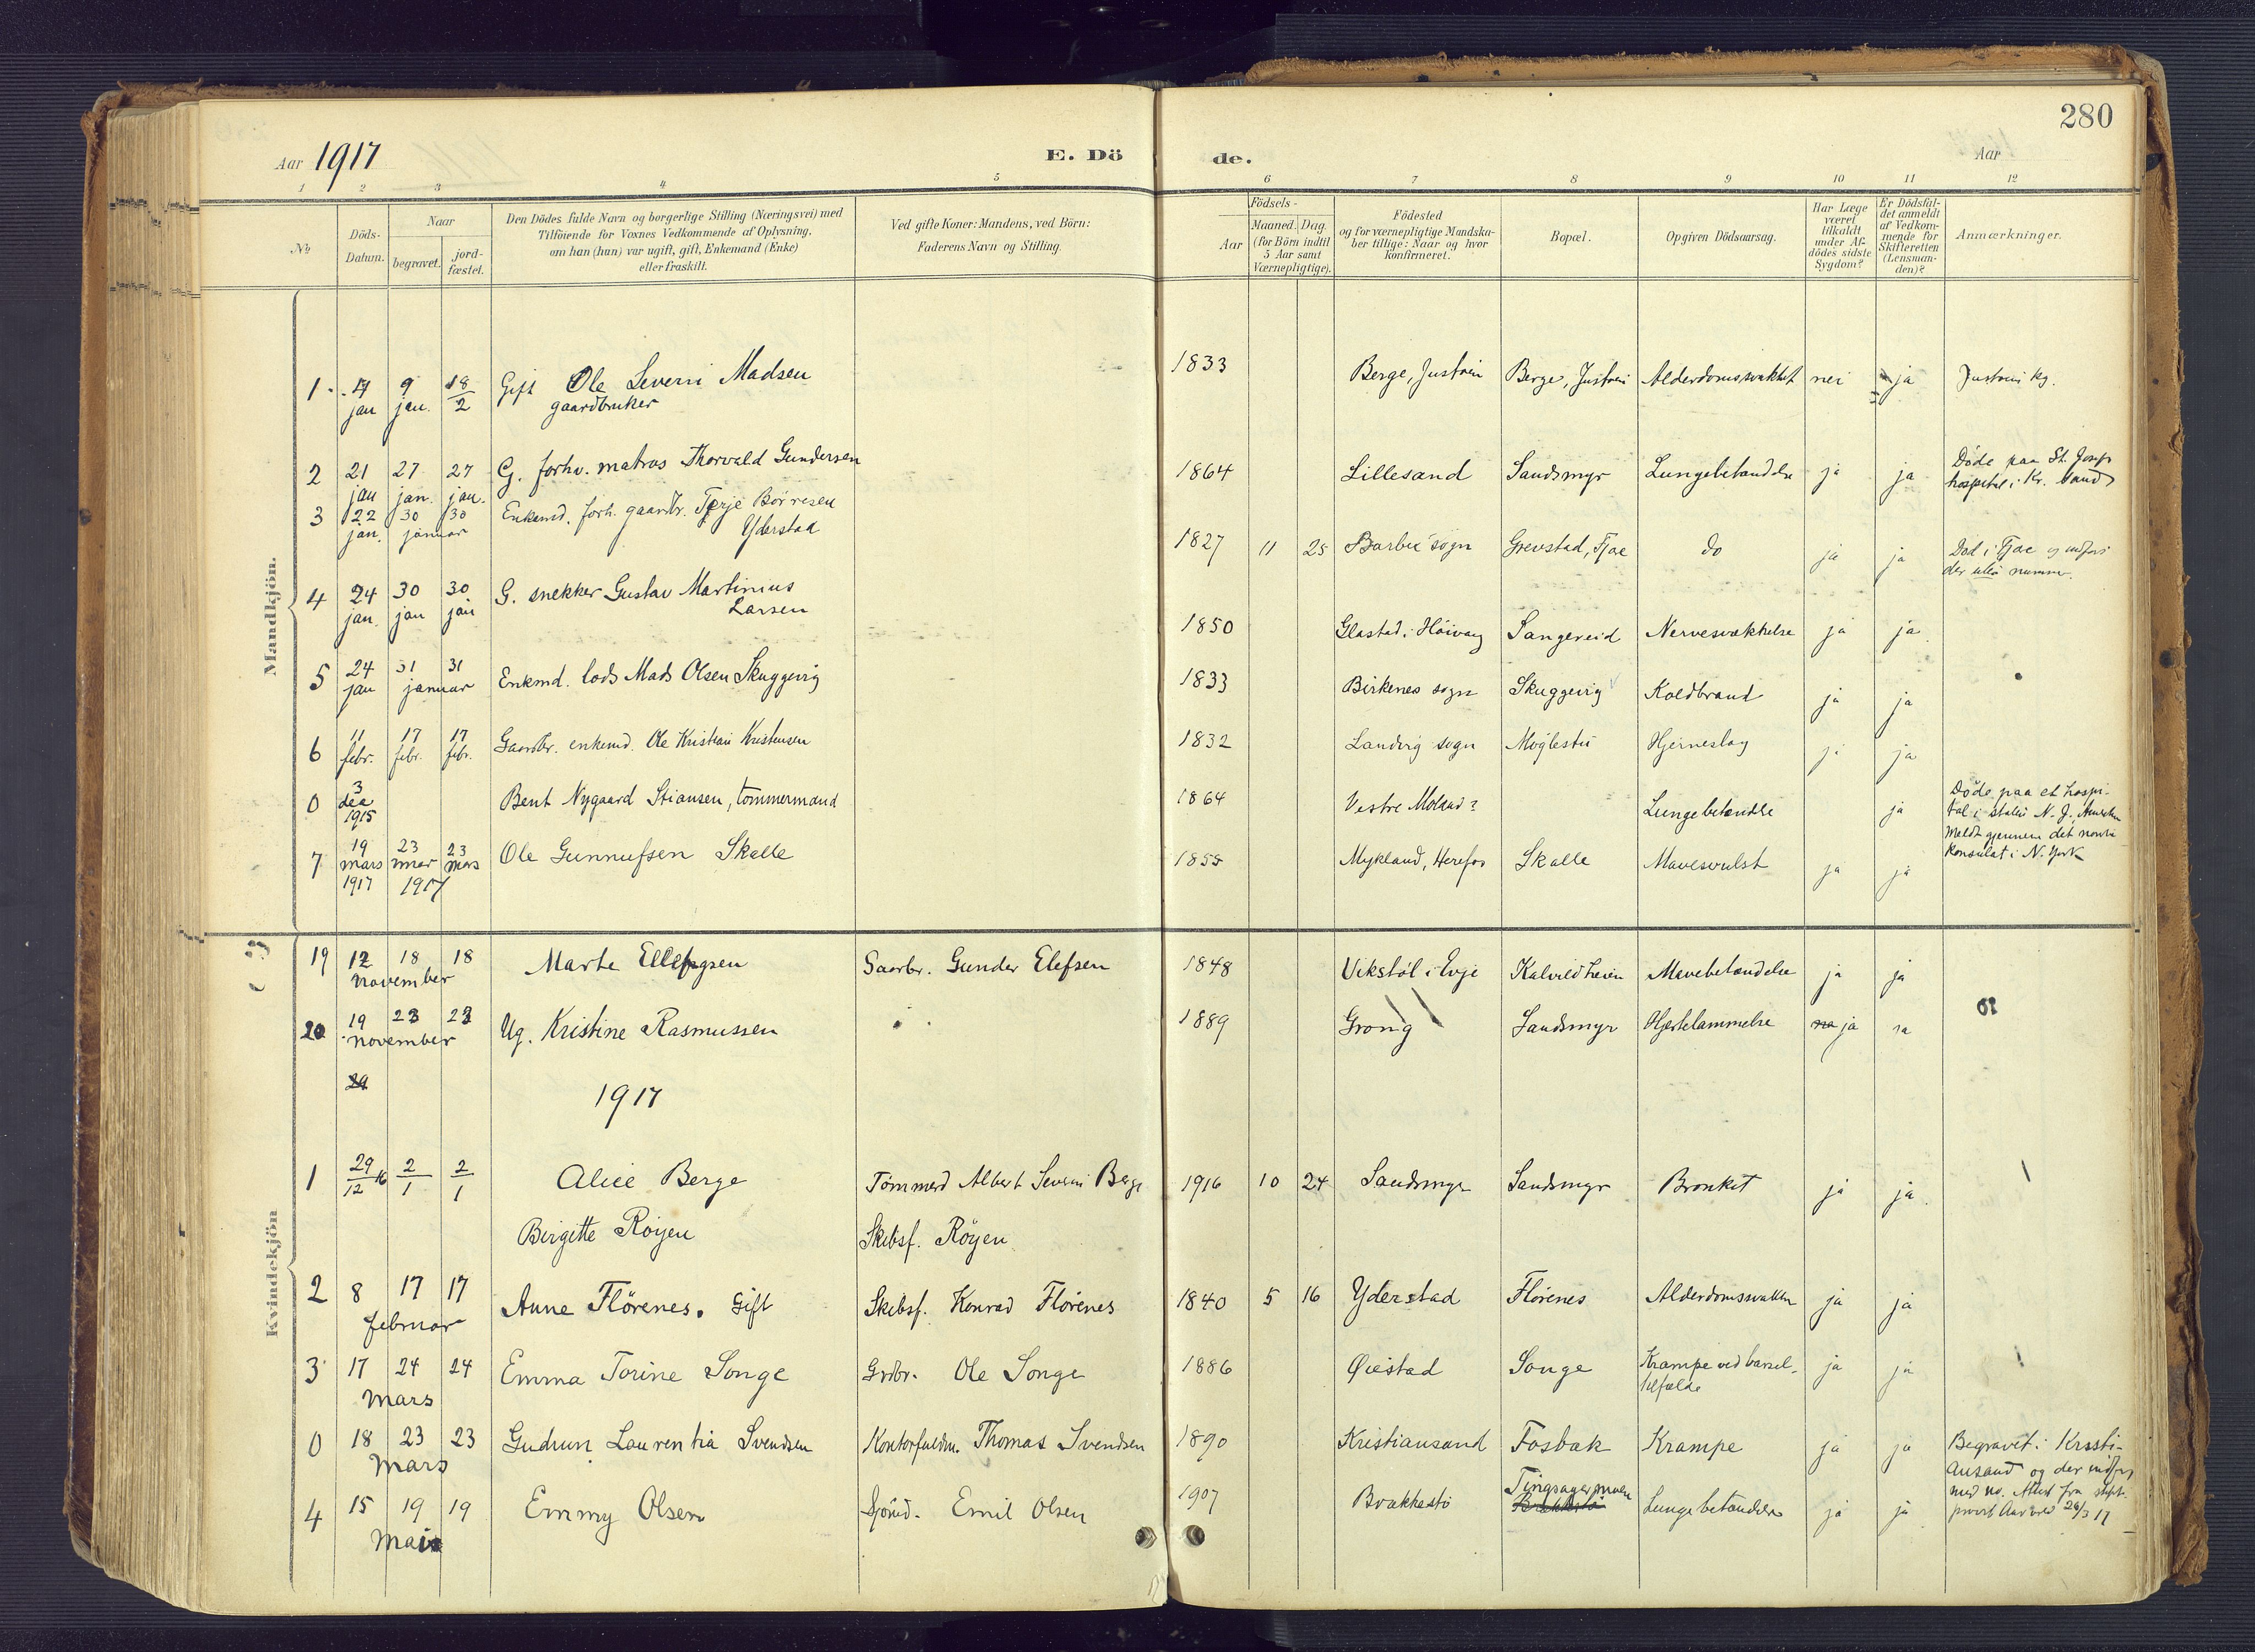 280
Aar 1917 E. Dö de. Aar
1 2 3 4 5 6 7 8 9 10 11 12
№
Döds-
Datum.
Naar
begravet.
jord-
fæstet.
Den Dödes fulde Navn og borgerlige Stilling (Næringsvei) med
Tilföiende for Voxnes Vedkommende af Oplysning.
om han (hun) var ugift, gift, Enkemand (Enke)
eller fraskilt.
Ved gifte Koner: Mandens, ved Börn:
Faderens Navn og Stilling.
Födsels-
Aar
Maaned. Dag.
(for Börn indtil
5 Aar samt
Værnepligtige).
Födested
og for værnepligtige Mandska-
ber tillige: Naar og hvor
konfirmeret.
Bopæl.
Opgiven Dödsaarsag.
Har Læge
været
tilkaldt
under Af-
dödes sidste
Sygdom?
Er Dödsfal-
det anmeldt
af Vedkom-
mende for
Skifteretten
(Lensman-
den)?
Anmærkninger.
Mandkjön.
1 9 18 Gift Ole Severin Madsen 1833 Berge, Justøin Berge, Justøin Alderdomssvakhet nei ja
jan jan. 2 gaardbruker
2 21 27 27 G. forhv. matros Thorvald Gundersen 1864 Lillesand Sandsmyr Lungebetændelse ja ja Döde paa St. Josefs
jan jan. jan. hospital i Kr. sand
3 22 30 30 Enkemd. forh. gaardbr. Terje Börresen 1827 11 25 Barbu sogn Grevstad, Fjære do ja ja Död i Fjære og indført
jan. januar Yderstad der uten nummer.
4 24 30 30 G. snekker Gustav Martinius 1850 Glastad i Höivaag Sangereid Nervesvækkelse ja ja
jan. jan jan Larsen
5 24 31 31 Enkmd. lods Mads Olsen Skuggevig 1833 Birkenes sogn Skuggevig Koldbrand ja ja
jan januar
6 11 17 17 Gaardbr. enkemd. Ole Kristian Kristensen 1832 Landvig sogn Møglestu Hjerneslag ja ja
febr. febr. febr.
0 3 Bent Nygaard Stiansen, tømmermand 1864 Vestre Moland? Lungebetændelse ja Döde paa et hospi-
dec tal i staten N. J., Amerika
1915 Meldt gjennem det norske
7 19 23 23 Ole Gunnufsen Skalle 1855 Mykland, Herefos Skalle Mavesvulst ja ja konsulat i N. York
mars mar mars
1917 1917
Kvindekjön
19 12 18 18 Marte Gaarbr. Gunder Elefsen 1848 Vikstøl i Evje Mavebetændelse ja ja
november
20 19 23 23 Ug. Kristine Rasmussen 1889 Grong Sandsmyr Hjertelammelse ja
november
29
1917
1 29/12 16 2/1 2/1 Alice Berge Tömmerd Albert Severin Berge 1916 10 24 Sandsmyr Sandsmyr Bronkit ja ja
Birgitte Röyen Skibsf. Röyen
2 8 17 17 Anne Flörenes. Gift Skibsf. Konrad Flörenes 1840 5 16 Yderstad Flörenes Alderdomssvakhet ja ja
februar
3 17 24 24 Emma Torine Songe Grdbr. Ole Songe 1886 Øiestad Songe Krampe ved barsel- ja ja
mars tilfælde
0 18 23 23 Gudrun Laurentia Svendsen Kontorfuldm. Thomas Svendsen 1890 Kristiansand Fosbæk Krampe ja ja Begravet i Kristi-
mars ansand og der indført
4 15 19 19 Emmy Olsen Sjömd. Emil Olsen 1907 Brækkestö Tingsagermoen Lungebetændelse ja ja med no. Attest fra
mars 26/3 17